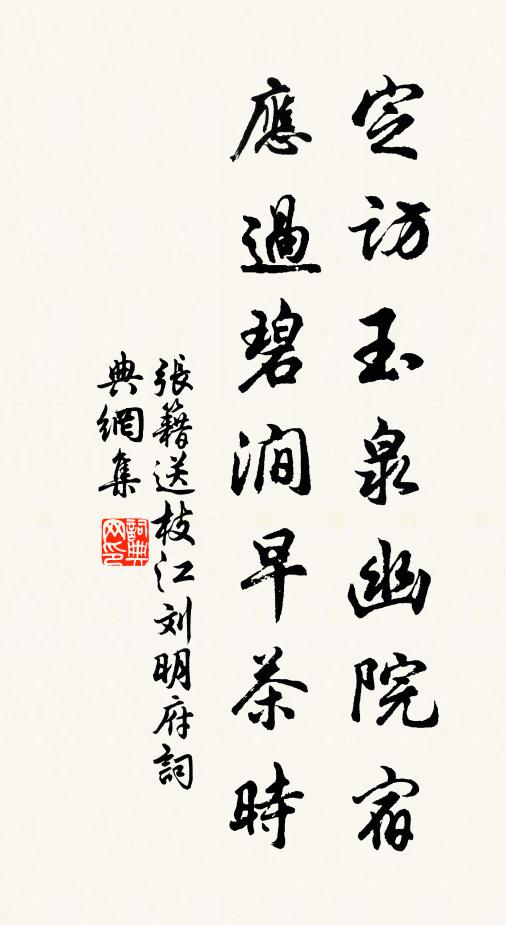 定訪玉泉幽院宿
應過碧澗早茶時
張籍送枝江刘明府詞
典網集
詞典网印